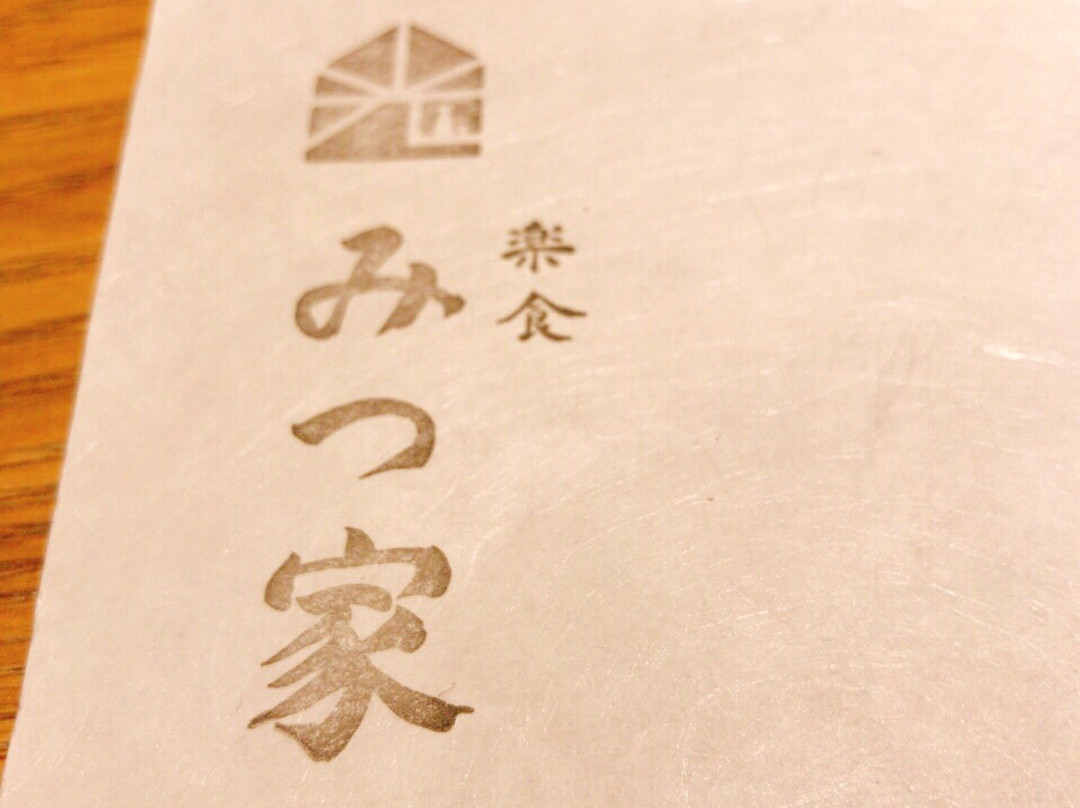 楽食
みつ家